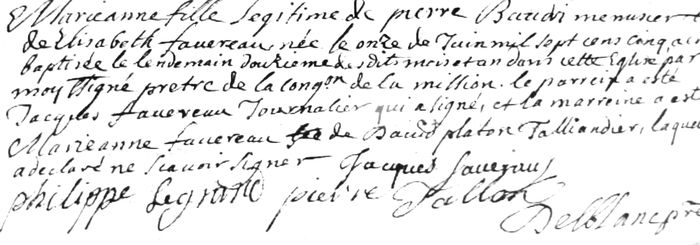 Marieanne fille Legitime de pierre Baudi menusier et
de Elisabeth favereau, née le onze de Juin mil sept cens cinq, a esté
baptisée le lendemain douzieme desdits mois et an dans cette Eglise par
moy ssigné pretre de la congon de la mission. le parrein a esté
Jacques favereau Journalier qui a signé, et la marreine a est
Marieanne favereau de David platon Talliandier, laque
a declaré ne scavoir signer Jacques favereau
philippe Legrand pierre Tallon
Delblanc pre